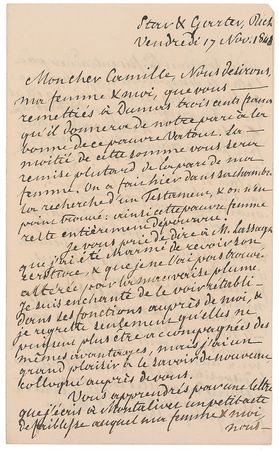 Star & Garter, Rich
Vendredi 17 Nov. 1848
Mon cher Camille, Nous désirons,
ma femme & moi, que vous
remettiés à Dumas trois cents francs
qu'il donnera de notre part à la
bonne de ce pauvre Vatout. La
moitié de cette somme vous sera
remise plus tard de la part de ma
femme. On a fait hier dans sa chambre
la recherche d'un Testament, & on n'en
point trouvé: ainsi cette pauvre femme
reste entièrement dépourvue.
Je vous prie de dire à M. Lassagne
que j'ai été charmé de revoir son
écriture, & que je ne l'ai pas trouvée
altérée par la mauvaise plume.
Je suis enchanté de le voir rétabli
dans ses fonctions auprès de moi, &
je regrette seulement qu'elles ne
puissent plus être accompagnées des
mêmes avantages, mais j'ai un
grand plaisir à le savoir de nouveau
colloqué auprès de vous.
Vous apprendrés par une lettre
que j'écris à Montalivet un petit acte
de faiblesse auquel ma femme & moi,
nous